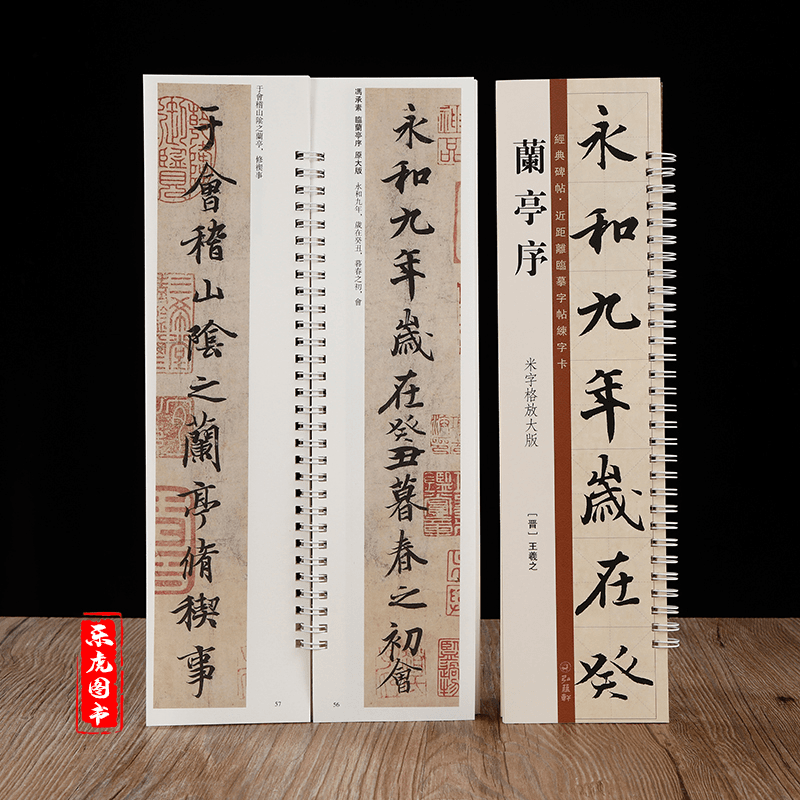 永和九年歲在癸
經典碑帖·近距離臨摹字帖練字卡
蘭亭序
米字格放大版
［晋］王羲之
永和九年歲在癸丑暮春之初會
馮承素 臨蘭亭序 原大版 永和九年，歲在癸丑，暮春之初，會
56
于會稽山陰之蘭亭，修禊事
于會稽山陰之蘭亭脩禊事
57
乐虎图书